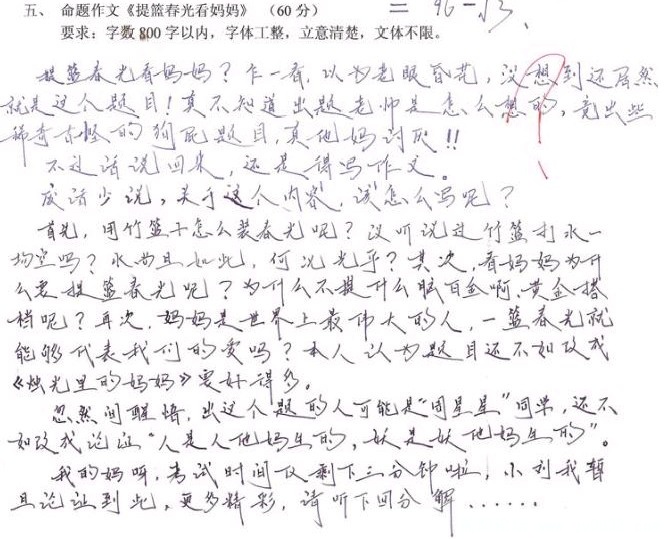 五、 命题作文《提篮春光看妈妈》 （60 分） = 96-√3、
要求：字数 800 字以内，字体工整，立意清楚，文体不限。
提篮春光看妈妈？乍一看，以为老眼昏花，没想到还居然
就是这个题目！真不知道出题老师是怎么想的，竟出些
稀奇古怪的狗屁题目，真他妈讨厌!!
不过话说回来，还是得写作文。
废话少说，关于这个内容，该怎么写呢？
首先，用竹篮子怎么装春光呢？没听说过竹篮打水一
场空吗？水尚且如此，何况光乎？其次，看妈妈为什
么要提篮春光呢？为什么不提什么脑白金啊，黄金搭
档呢？再次，妈妈是世界上最伟大的人，一篮春光就
能够代表我们的爱吗？本人认为题目还不如改成
《烛光里的妈妈》要好得多。
忽然间醒悟，出这个题的人可能是“周星星”同学，还不
如改成论证“人是人他妈生的，妖是妖他妈生的”。
我的妈呀，考试时间仅剩下三分钟啦，小利我暂
且论证到此，更多精彩，请听下回分解......